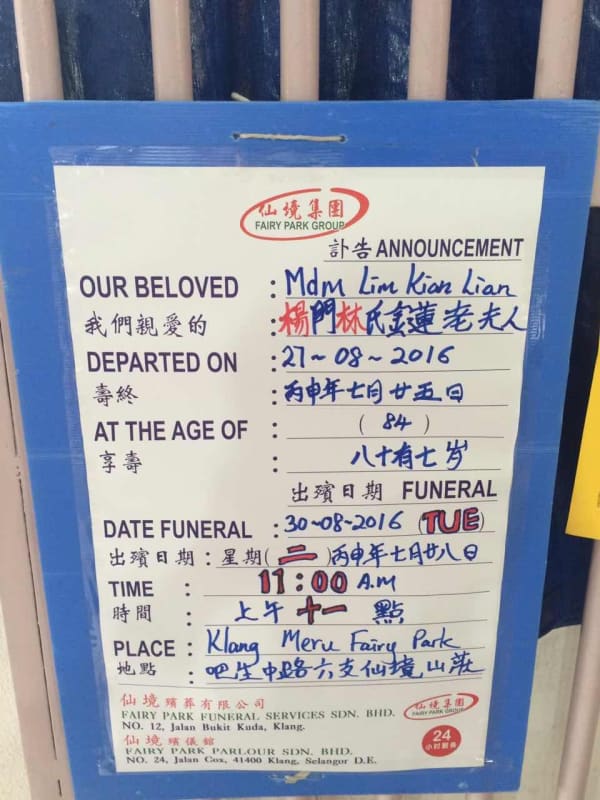 仙境集團
FAIRY PARK GROUP
訃告 ANNOUNCEMENT
OUR BELOVED : Mdm Lim Kian Lian
我們親愛的 : 楊門林氏金蓮老夫人
DEPARTED ON : 27~08~2016
壽終 : 丙申年七月廿五日
AT THE AGE OF : (84)
享壽 : 八十有七岁
出殯日期 FUNERAL
DATE FUNERAL : 30~08~2016 (TUE)
出殯日期 : 星期(二)丙申年七月廿八日
TIME : 11:00 A.M
時間 : 上午十一點
PLACE : Klang Meru Fairy Park
地點 : 吧生中路六支仙境山莊
仙境殯葬有限公司
FAIRY PARK FUNERAL SERVICES SDN. BHD.
NO. 12, Jalan Bukit Kuda, Klang.
仙境殯儀館
FAIRY PARK PARLOUR SDN. BHD.
NO. 24, Jalan Cox, 41400 Klang, Selangor D.E.
仙境集團
FAIRY PARK GROUP
24
小时服务